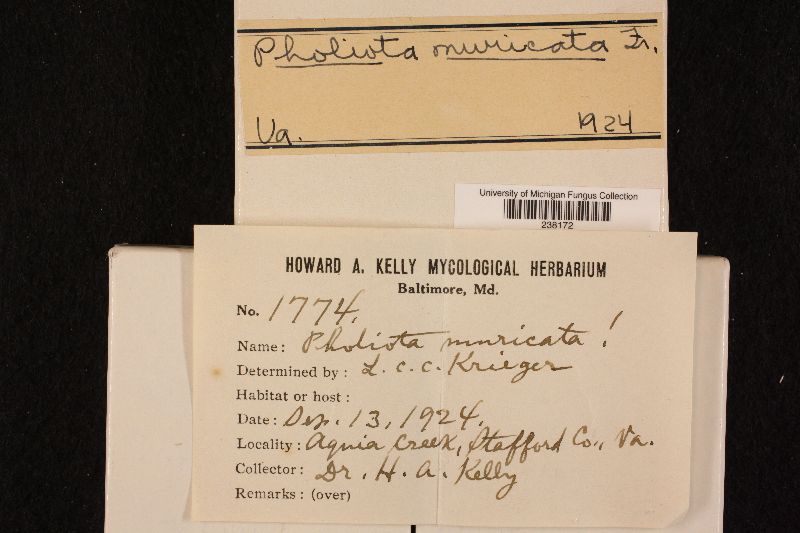 Pholiota muricata Fr.
Va. 1924
University of Michigan Fungus Collection
238172
HOWARD A. KELLY MYCOLOGICAL HERBARIUM
Baltimore, Md.
No. 1774.
Name: Pholiota muricata!
Determined by: L. C. C. Krieger
Habitat or host:
Date: 13, 1924.
Locality: Aquia Creek, Stafford Co., Va.
Collector: Dr. H. A. Kelly
Remarks: (over)